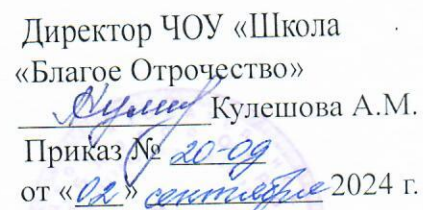 Директор ЧОУ «Школа
«Благое Отрочество»
Кулешова А.М.
Приказ № 20-од
от «02» сентября 2024 г.